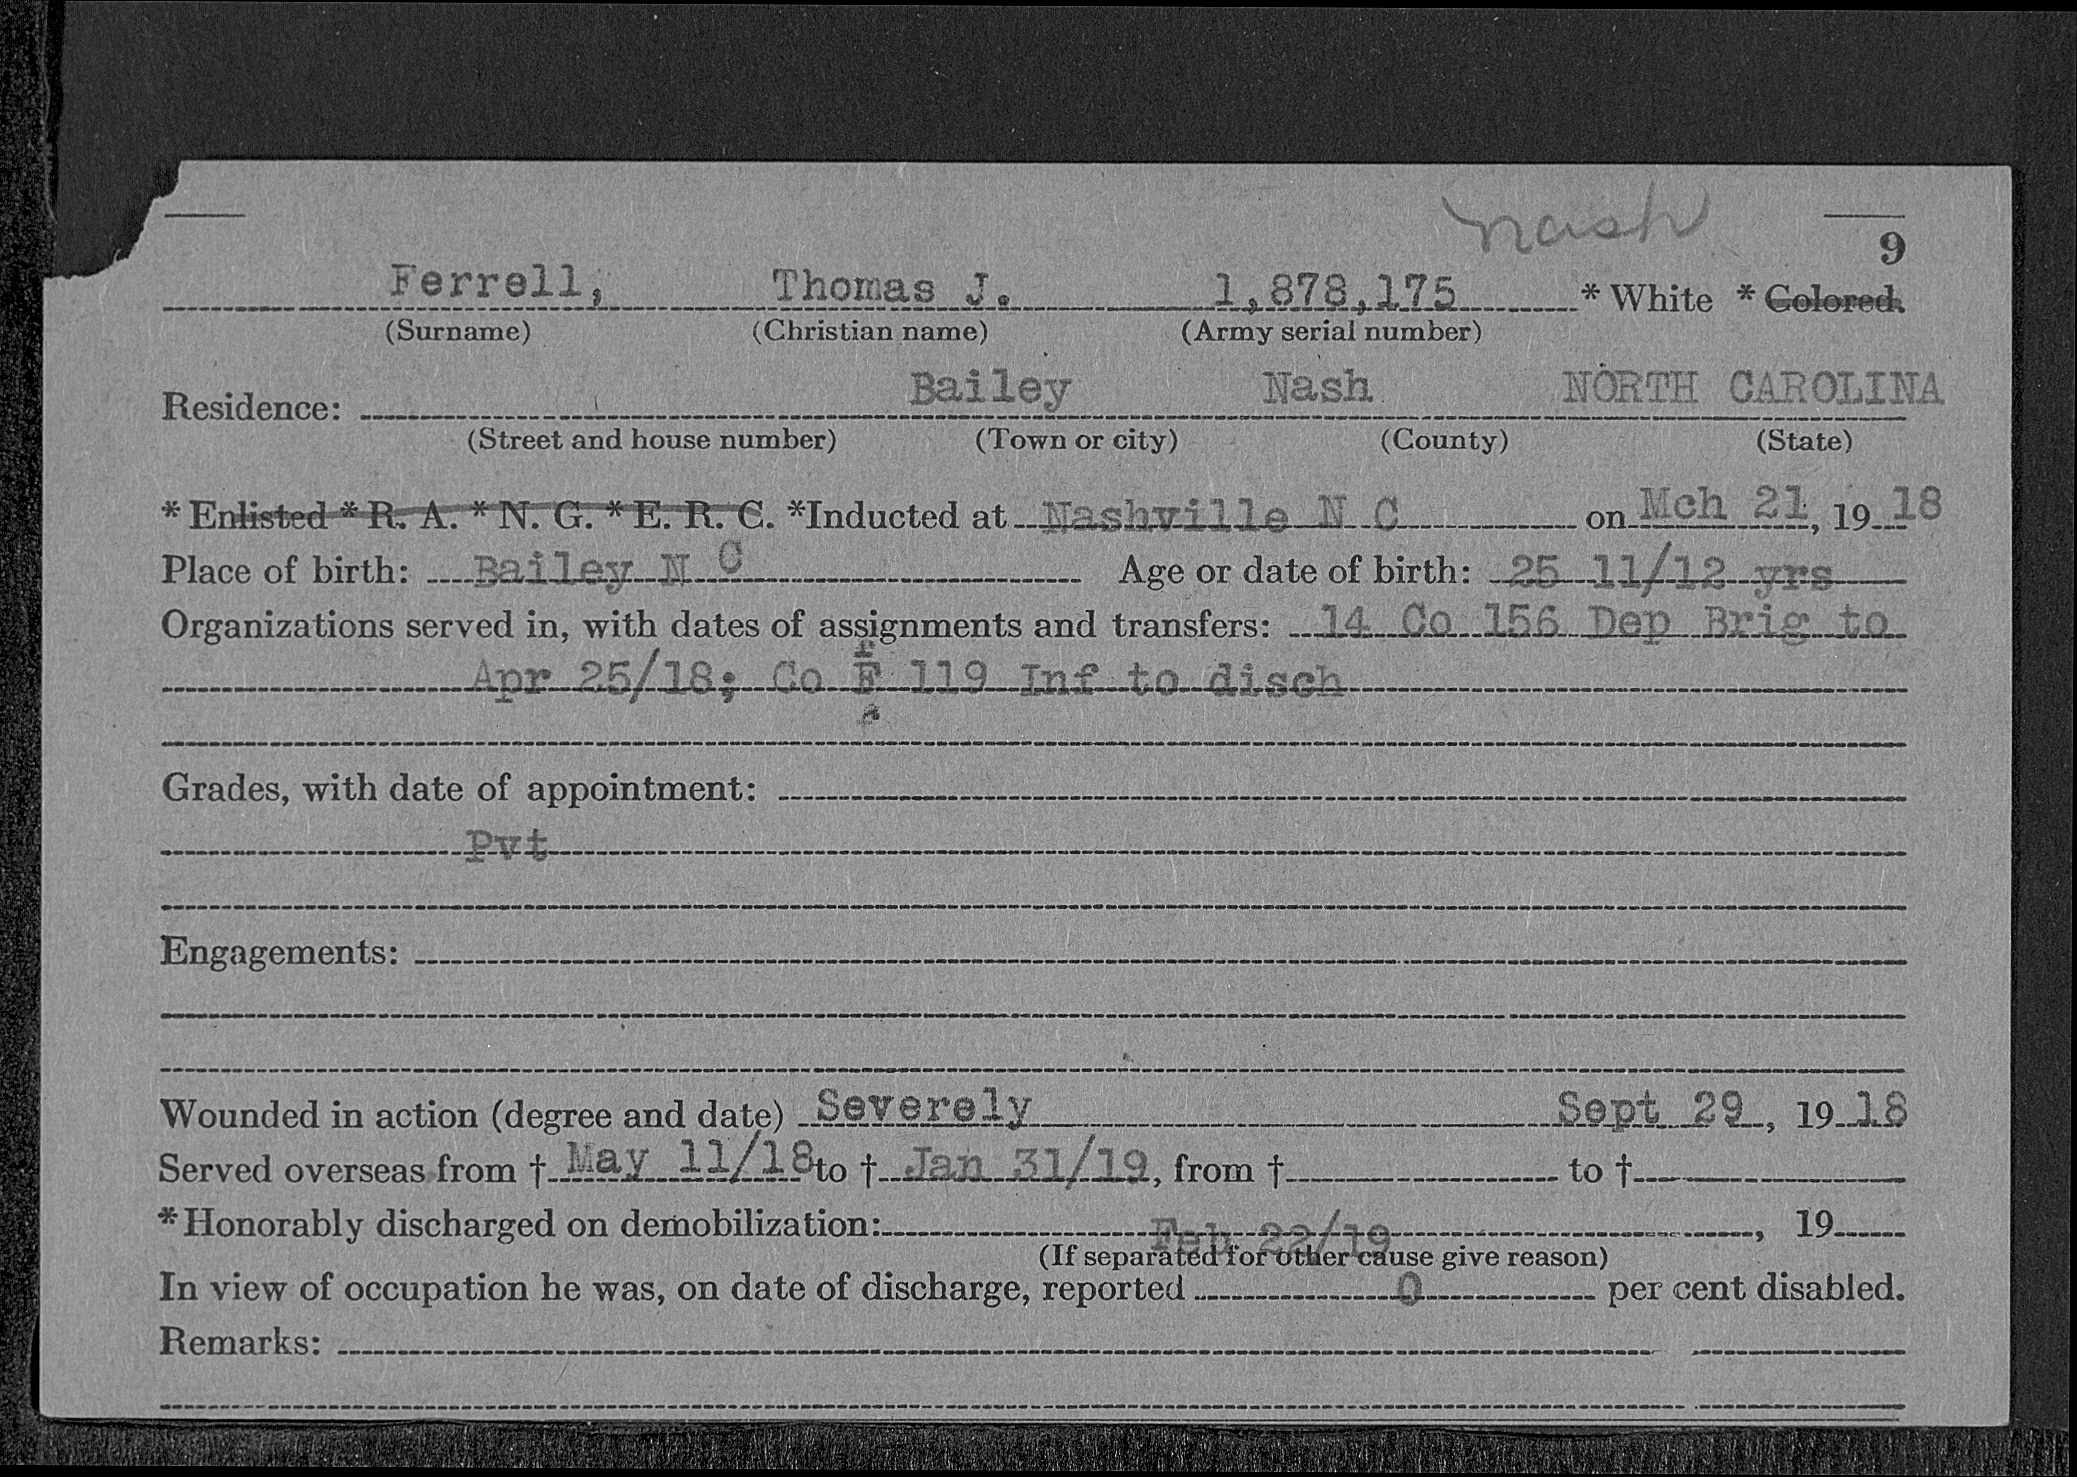 Nash
9
Ferrell, Thomas J. 1,878,175 * White * Colored.
(Surname) (Christian name) (Army serial number)
Residence: Bailey Nash NORTH CAROLINA
(Street and house number) (Town or city) (County) (State)
* Enlisted * R. A. * N. G. * E. R. C. *Inducted at Nashville N C on Mch 21, 19 18
Place of birth: Bailey N C Age or date of birth: 25 11/12 yrs
Organizations served in, with dates of assignments and transfers: 14 Co 156 Dep Brig to
Apr 25/18; Co F 119 Inf to disch
Grades, with date of appointment:
Pvt
Engagements:
Wounded in action (degree and date) Severely Sept 29, 19 18
Served overseas from † May 11/18 to † Jan 31/19, from † to †
*Honorably discharged on demobilization: Feb 22/19, 19
(If separated for other cause give reason)
In view of occupation he was, on date of discharge, reported 0 per cent disabled.
Remarks: